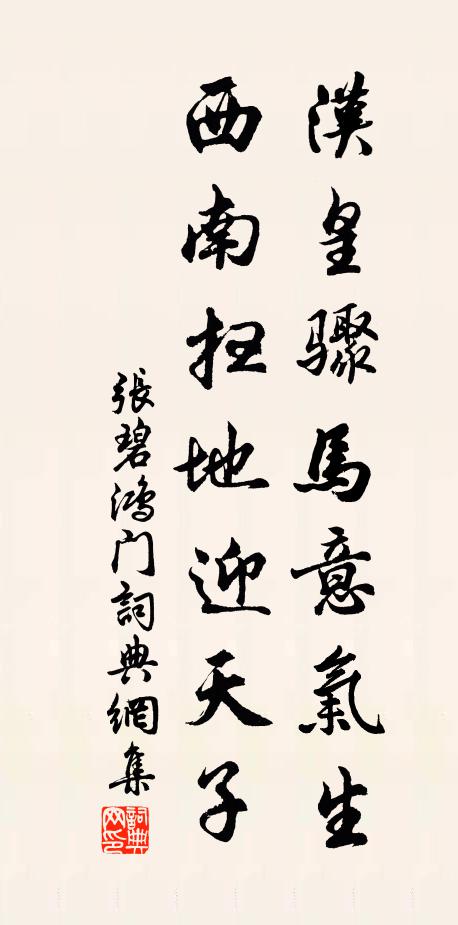 漢皇驟馬意氣生
西南扫地迎天子
張碧鴻门詞典網集
詞典
网印